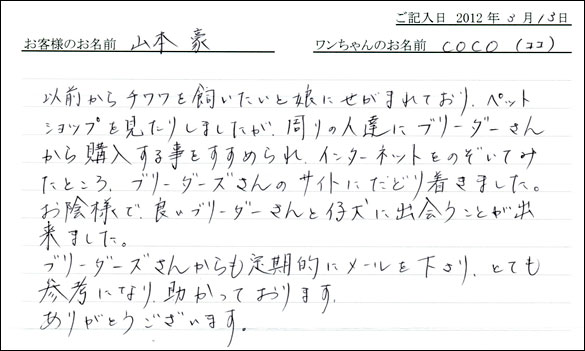 ご記入日 2012年 3月13日
お客様のお名前 山本 豪 ワンちゃんのお名前 COCO (ココ)
以前からチワワを飼いたいと娘にせがまれており、ペット
ショップを見たりしましたが、周りの人達にブリーダーさん
から購入する事をすすめられ、インターネットをのぞいてみ
たところ、ブリーダーズさんのサイトにたどり着きました。
お陰様で、良いブリーダーさんと仔犬に出会うことが出
来ました。
ブリーダーズさんからも定期的にメールを下さり、とても
参考になり、助かっております。
ありがとうございます。